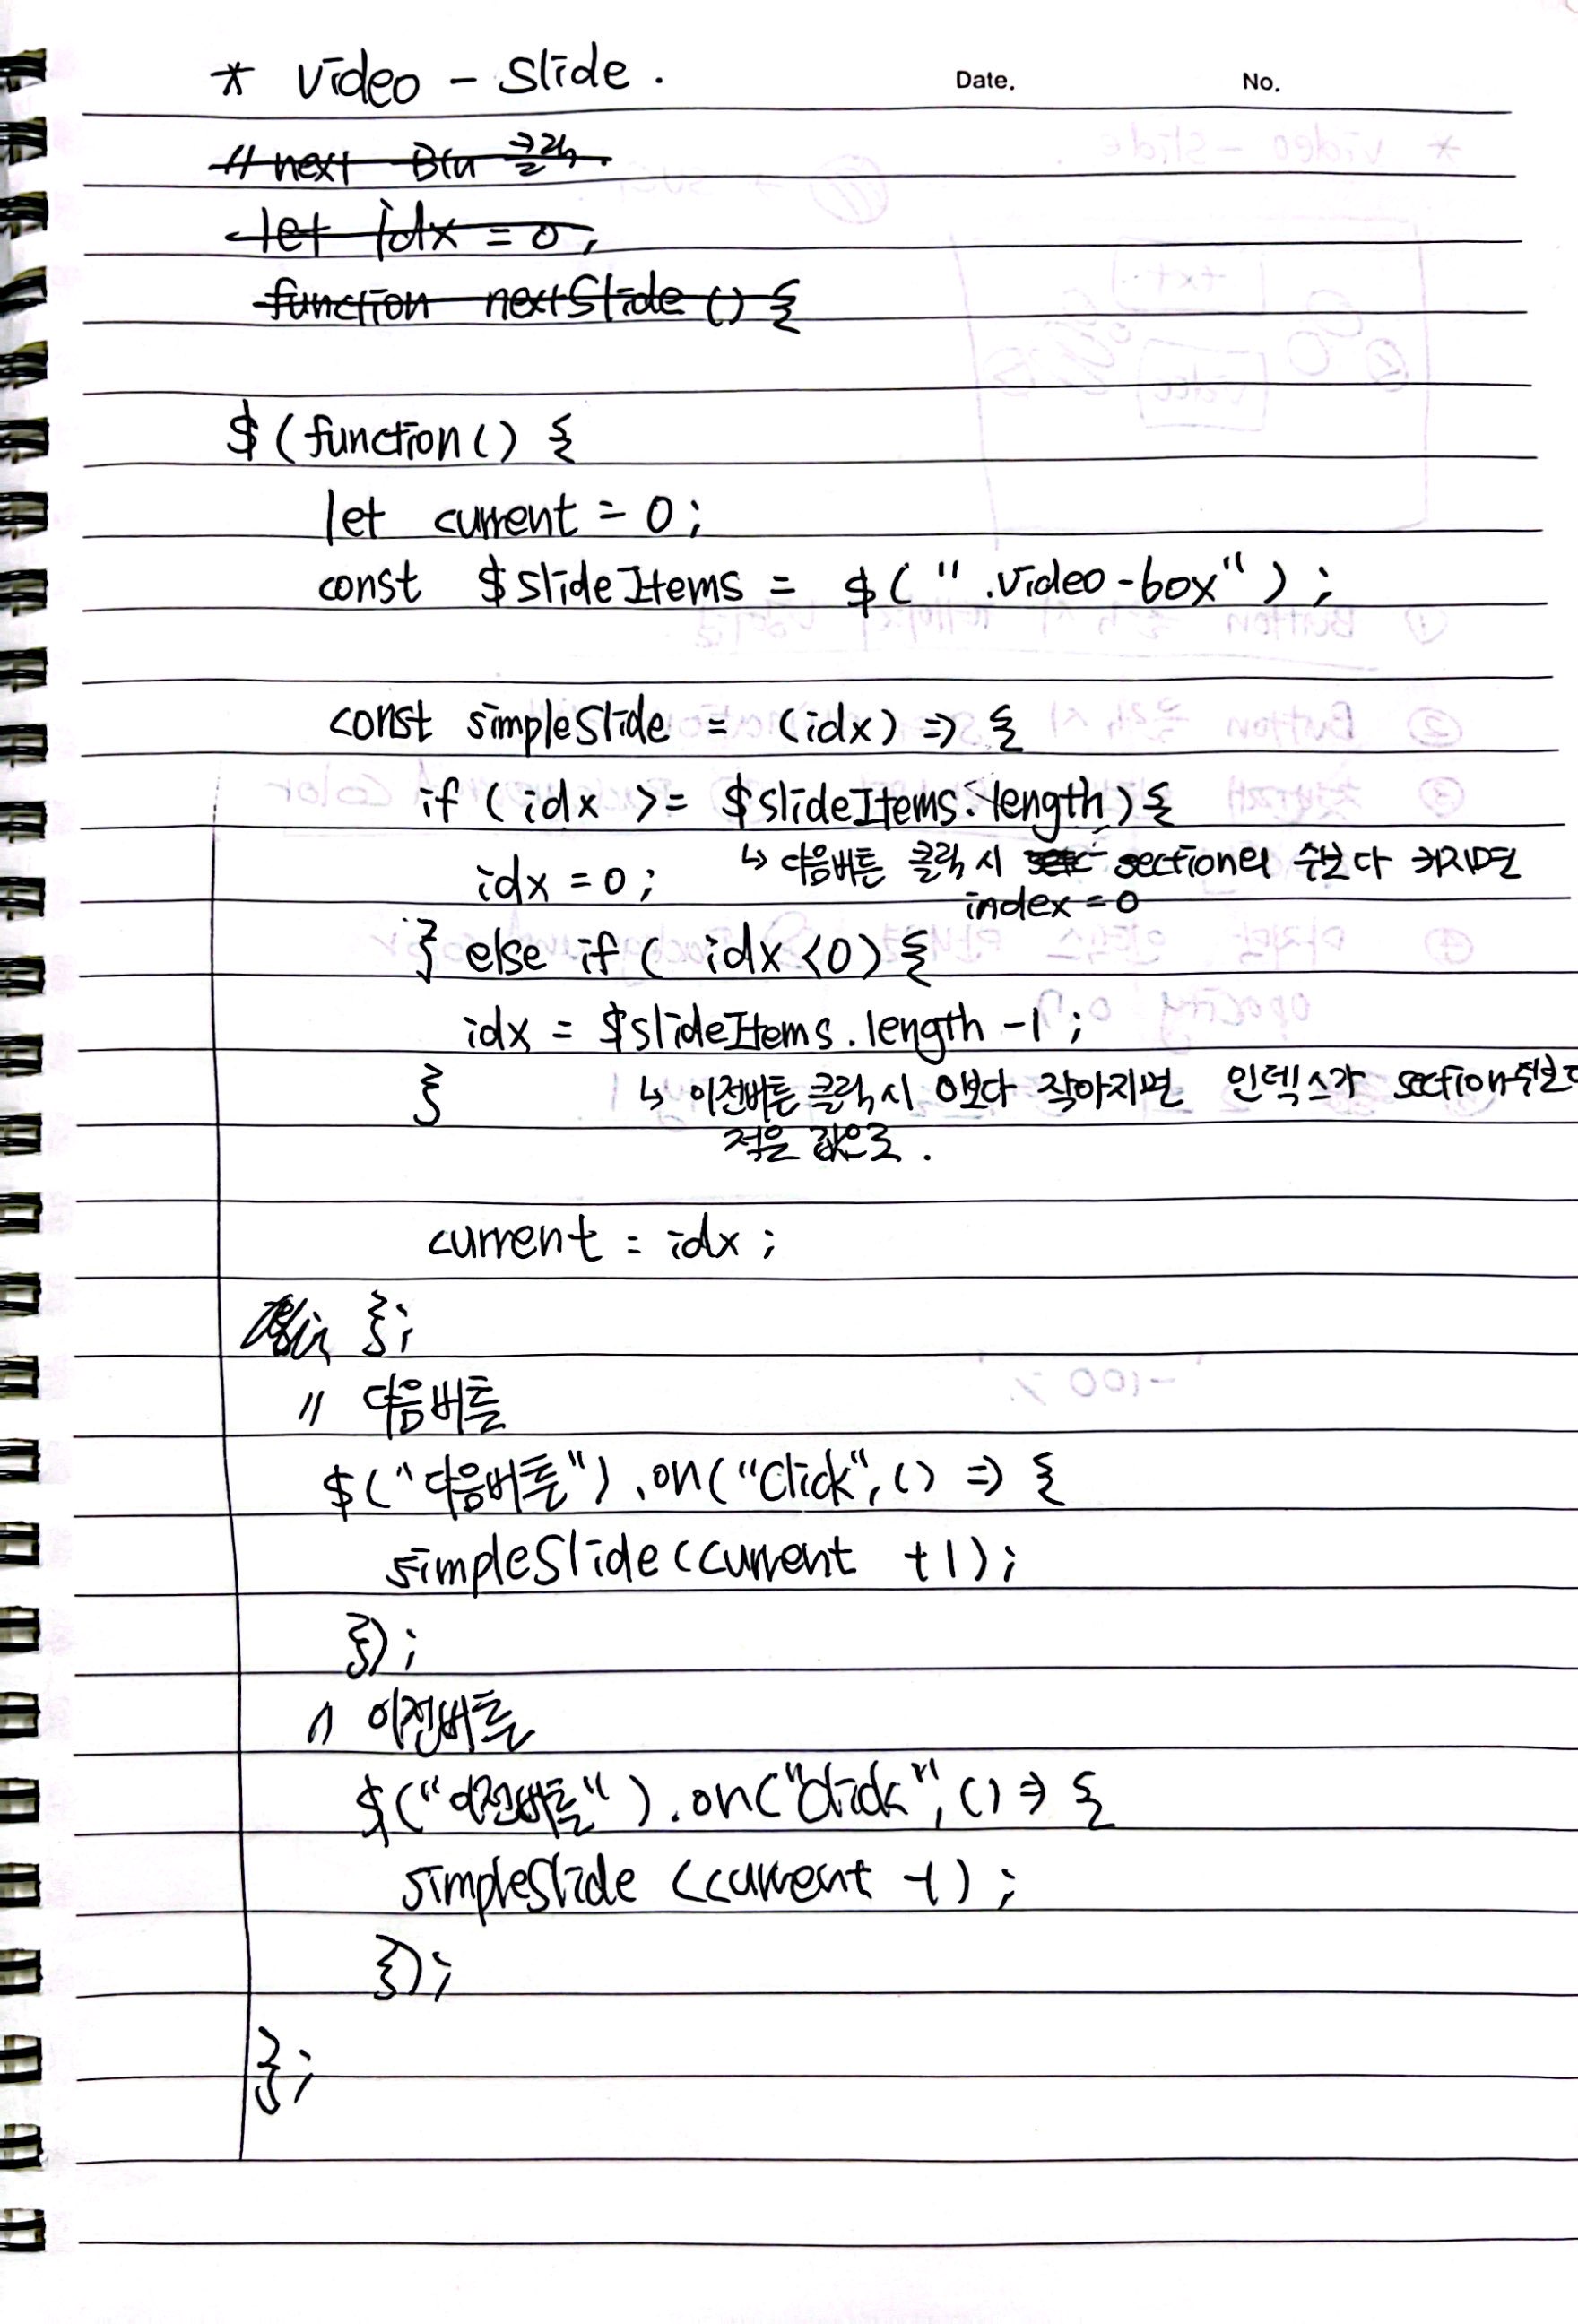 * video - slide.
Date. No.
// next Btn 클릭.
let idx = 0;
function nextSlide () {
$ (function() {
let current = 0;
const $slideItems = $( " .video-box" ) ;
const simpleSlide = (idx) => {
if ( idx >= $slideItems.length ) {
idx = 0; ↳ 다음버튼 클릭 시 section의 수보다 커지면
index = 0
} else if ( idx < 0 ) {
idx = $slideItems.length -1 ;
} ↳ 이전버튼 클릭 시 0보다 작아지면 인덱스가 section수보다
적은 값으로 .
current = idx ;
};
// 다음버튼
$("다음버튼").on("click", () => {
simpleSlide (current +1);
});
// 이전버튼
$("이전버튼").on("click", () => {
simpleSlide (current -1) ;
});
};